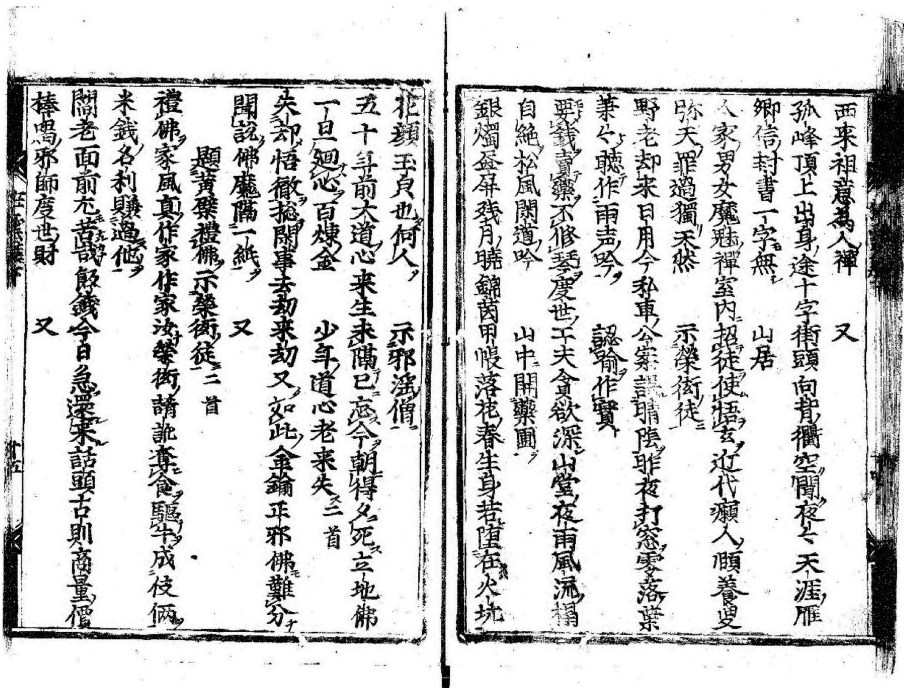 西来祖意為人禪　又
孤峰頂上出身途十字街頭向背衢空聞夜々天涯雁
郷信封書一字無　山居
人家男女魔魅禪室内招徒使悟玄近代癩人頤養叟
弥天罪過獨天然　示榮衒徒
野老却来日用今私車公案誤晴陰昨夜打窓零落葉
葉々聴作雨声吟　認諭作賢
要銭賣藥不修琴度世工夫貪欲深山堂夜雨風流榻
自絶松風閑道吟　山中開藥圃
銀燭盃屏残月曉錦茵甲帳落花春生身若堕在火坑
花顔玉皃也何人　示邪淫僧
五十年前大道心来生未隔已忘今朝得夕死立地佛
一旦廻心百煉金　少年道心老来失二首
失却悟徹捴閑事去劫来劫又如此金鍮正邪佛難分
聞説佛魔隔一紙　又
題黄檗禮佛示榮衒徒二首
禮佛家風真作家作家汝榮衒請訛奪食驅牛成伎倆
米銭名利賺過他
閻老面前尤苦哉飯銭今日急還来話頭古則商量價
棒喝邪師度世財　又
十五